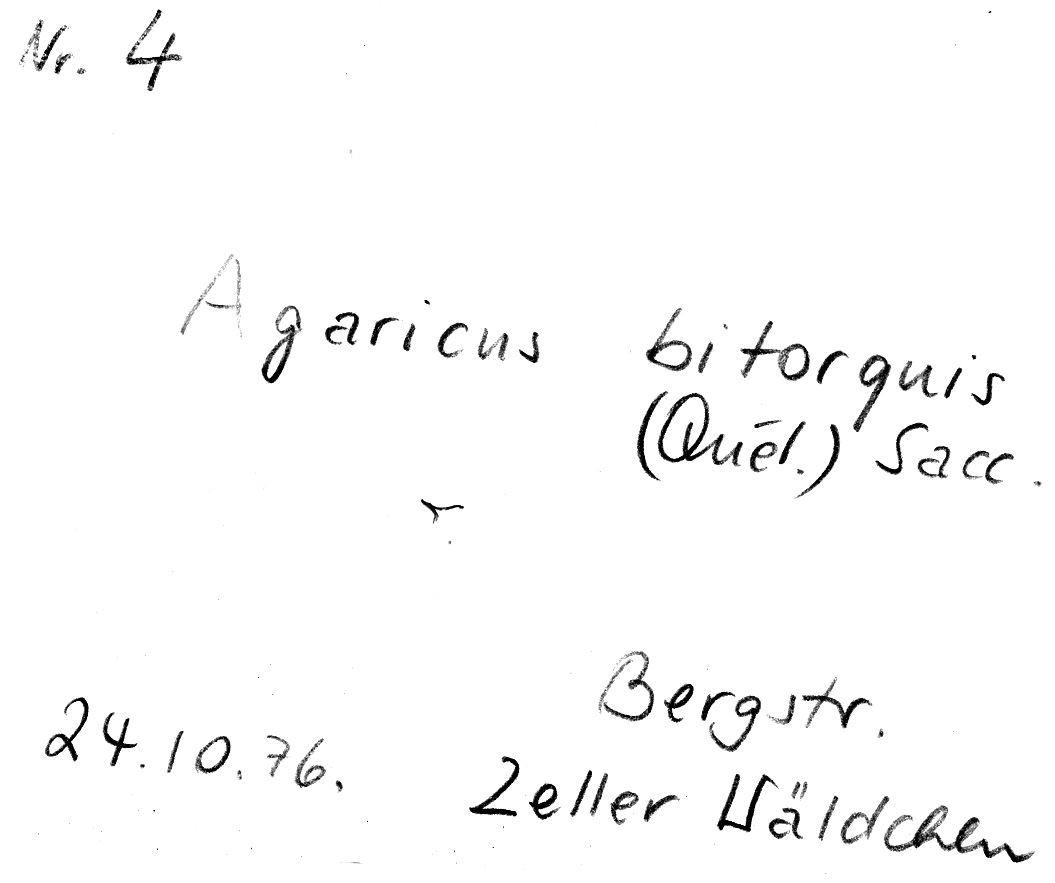 Nr. 4
Agaricus bitorquis
(Quél.) Sacc.
Bergstr.
24.10.76.
Zeller Wäldchen